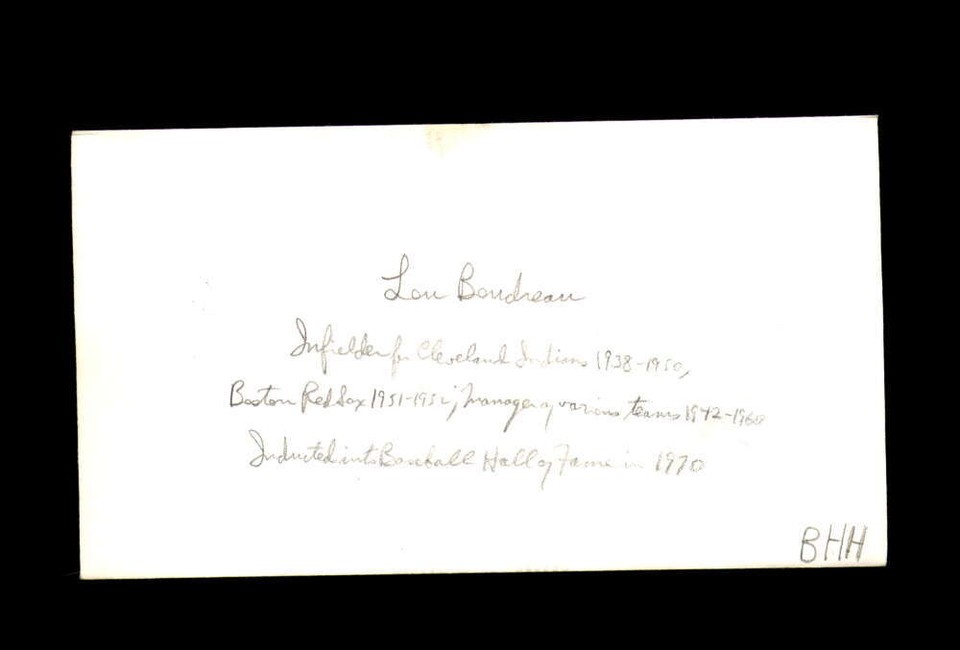 Lou Boudreau
Infielder for Cleveland Indians 1938-1950,
Boston Red Sox 1951-1952; manager of various teams 1942-1960
Inducted into Baseball Hall of Fame in 1970
BHH